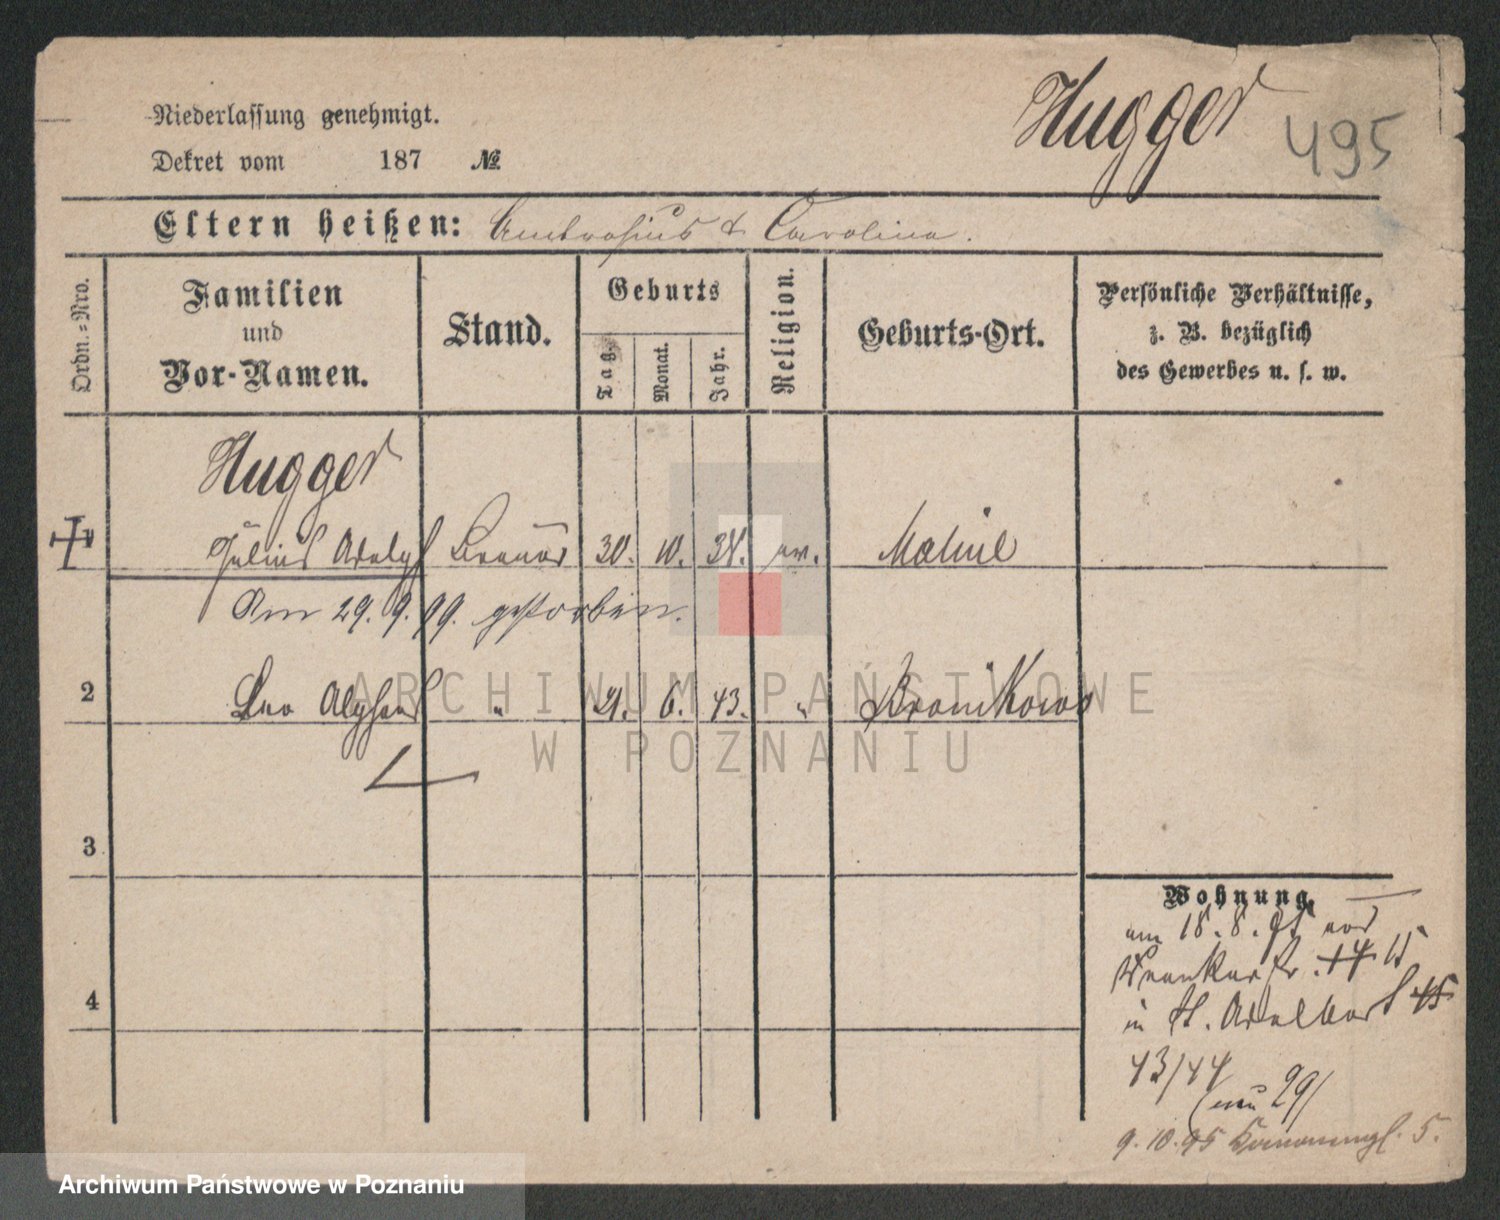 Niederlassung genehmigt.
Dekret vom 187 №
Hugger 495
Eltern heißen: Ambrosius & Carolina.
Ordn.-Nro.
Familien
und
Vor-Namen.
Stand.
Geburts
Tag.
Monat.
Jahr.
Religion.
Geburts-Ort.
Persönliche Verhältnisse,
z. B. bezüglich
des Gewerbes u. s. w.
Hugger
Julius Adolf Brauer 30. 10. 38. ev. Maline
Am 29. 9. 99. gestorben.
2 Leo Alphons " 21. 6. 43. " Bronikowo
3
4
Wohnung.
am 18. 8. 95
Kronkerstr. 14 15
in St. Adalbert 45
43/44
(neu 29/
9. 10. 95 5.
ARCHIWUM PAŃSTWOWE
W POZNANIU
Archiwum Państwowe w Poznaniu